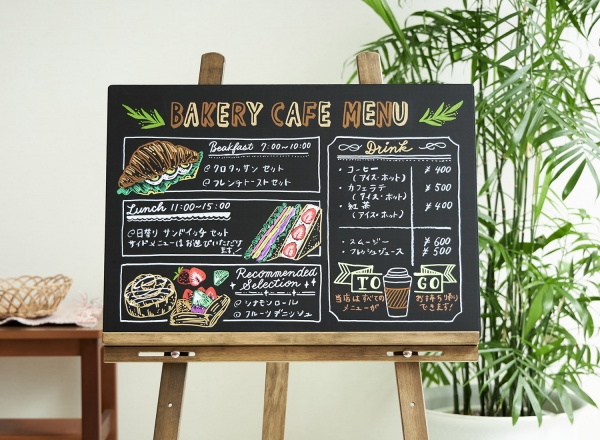 BAKERY CAFE MENU
Beakfast 7:00~10:00
@クロワッサン セット
@フレンチトーストセット
Lunch 11:00~15:00
@日替り サンドイッチ セット
サイドメニューはお選びいただけます!
Recommended
Selection
@シナモンロール
@フルーツデニッシュ
Drink
・コーヒー ¥400
(アイス・ホット)
カフェラテ ¥500
(アイス・ホット)
・紅茶 ¥400
(アイス・ホット)
・スムージー ¥600
・フレッシュジュース ¥500
TO GO
当店はすべての
メニューが
お持ち帰り
できます!